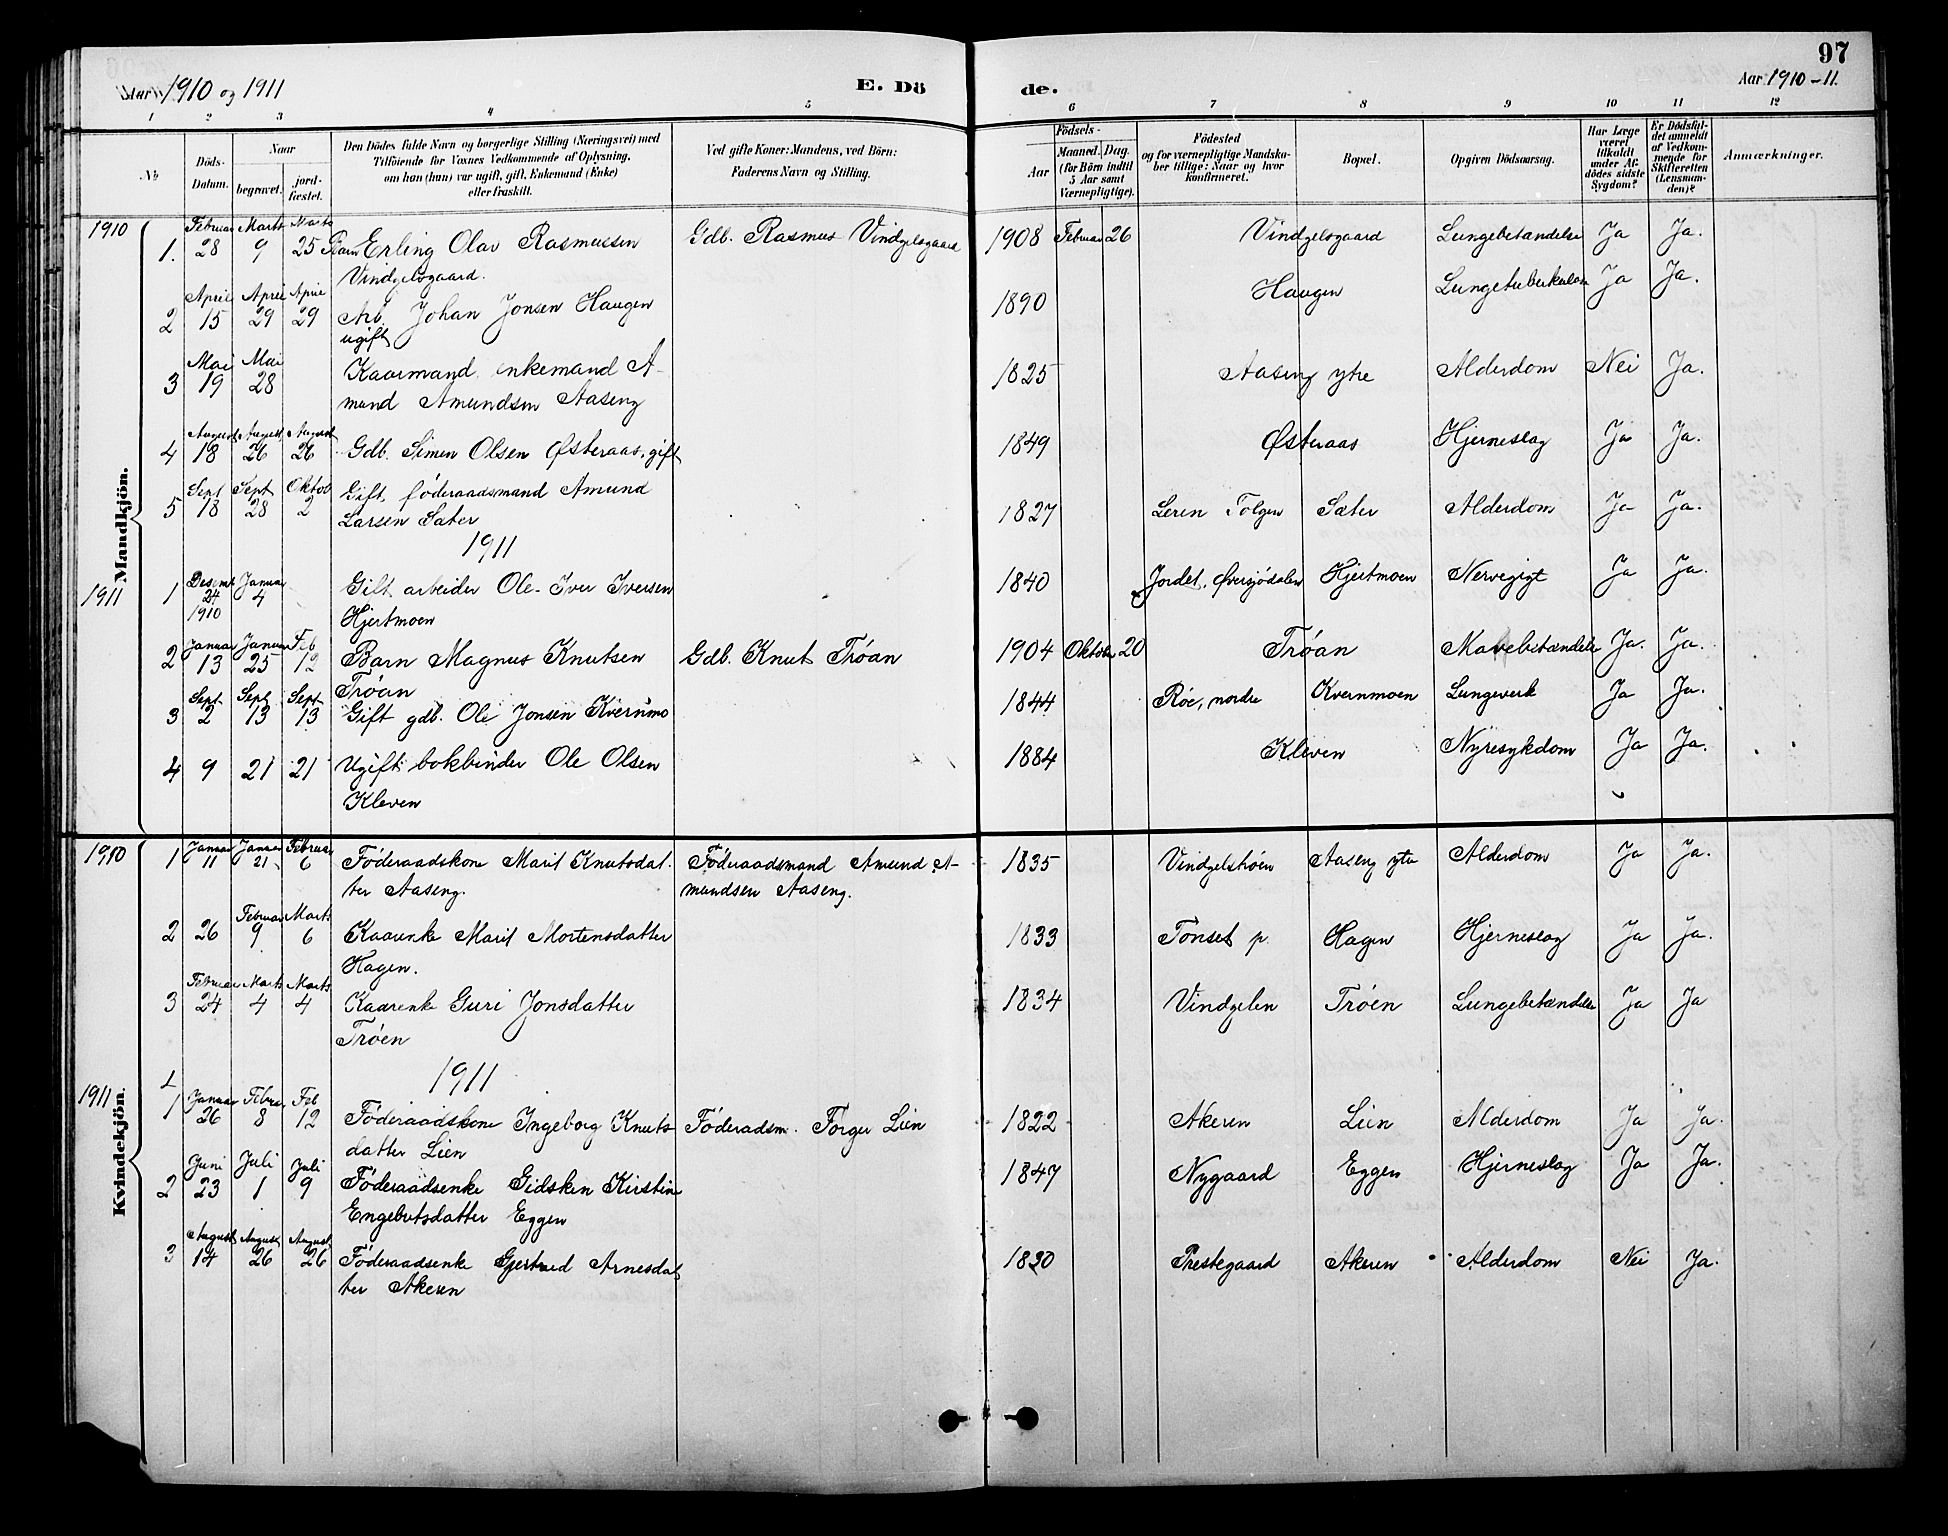 97
Aar 1910 og 1911
E. Dö
de.
Aar 1910-11.
1 2 3 4 5 6 7 8 9 10 11 12
No
Döds-Datum.
Naar
begravet.
jord-fæstet.
Den Dödes fulde Navn og borgerlige Stilling (Næringsvei) med
Tilföiende for Voxnes Vedkommende af Oplysning,
om han (hun) var ugift, gift, Enkemand (Enke)
eller fraskilt.
Ved gifte Koner: Mandens, ved Börn:
Faderens Navn og Stilling.
Födsels-
Aar
Maaned. Dag.
(for Börn indtil
5 Aar samt
Værnepligtige).
Födested
og for værnepligtige Mandska-
ber tillige: Naar og hvor
konfirmeret.
Bopæl.
Opgiven Dödsaarsag.
Har Læge
været
tilkaldt
under Af-
dödes sidste
Sygdom?
Er Dödsfal-
det anmeldt
af Vedkom-
mende for
Skifteretten
(Lensman-
den)?
Anmærkninger.
Mandkjön.
1910
1. Februar 28 Marts 9 Marts 25 Barn Erling Olav Rasmussen Gdb. Rasmus Vindgelsgaard 1908 Februar 26 Vindgelsgaard Lungebetændelse Ja Ja.
Vindgelsgaard.
2 April 15 April 29 April 29 Arb. Johan Jonsen Haugen 1890 Haugen Lungetuberkulose Ja Ja.
ugift
3 Mai 19 Mai 28 Kaarmand, enkemand A- 1825 Aaseng ytre Alderdom Nei Ja.
mund Amundsen Aaseng
4 August 18 August 26 August 26 Gdb. Simen Olsen Østeraas, gift 1849 Østeraas Hjerneslag Ja Ja.
5 Sept 18 Sept 28 Oktob 2 Gift föderaadsmand Amund 1827 Leren Tolgen Sæter Alderdom Ja Ja.
Larsen Sæter
1911
1911 1 Desemb 24 1910 Januar 4 Gift arbeider Ole Iver Iversen 1840 Jordet, Øversjödalen Hjertmoen Nervegigt Ja Ja.
Hjertmoen
2 Januar 13 Januar 25 Feb 12 Barn Magnus Knutsen Gdb. Knut Tröan 1904 Oktober 20 Tröan Mavebetændelse Ja. Ja.
Tröan
3 Sept 2 Sept 13 Sept 13 Gift gdb. Ole Jonsen Kvernmo 1844 Röe, nordre Kvernmoen Lungeverk Ja Ja.
4 9 21 21 Ugift bokbinder Ole Olsen 1884 Kleven Nyresykdom Ja Ja.
Kleven
Kvindekjön.
1910 1 Januar 11 Januar 21 Februar 6 Föderaadskone Marit Knutsdat- Föderaadsmand Amund A- 1835 Vindgelströen Aaseng ytre Alderdom Ja Ja.
ter Aaseng. mundsen Aaseng.
2 26 Februar 9 Marts 6 Kaarenke Marit Mortensdatter 1833 Tönset p. Hagen Hjerneslag Ja Ja.
Hagen.
3 Februar 24 Marts 4 Marts 4 Kaarenke Guri Jonsdatter 1834 Vindgelen Tröen Lungebetændelse Ja Ja
Tröen
1911
1911 1 Januar 26 Febru. 8 Feb 12 Föderaadskone Ingeborg Knuts- Föderadsm. Torger Lien 1822 Akeren Lien Alderdom Ja Ja.
datter Lien
2 Juni 23 Juli 1 Juli 9 Föderaadsenke Gidsken Kirstine 1847 Nygaard Eggen Hjerneslag Ja Ja.
Engebretsdatter Eggen
3 August 14 August 26 August 26 Föderaadsenke Gjertrud Arnesdat 1830 Prestegaard Akeren Alderdom Nei Ja.
ter Akeren